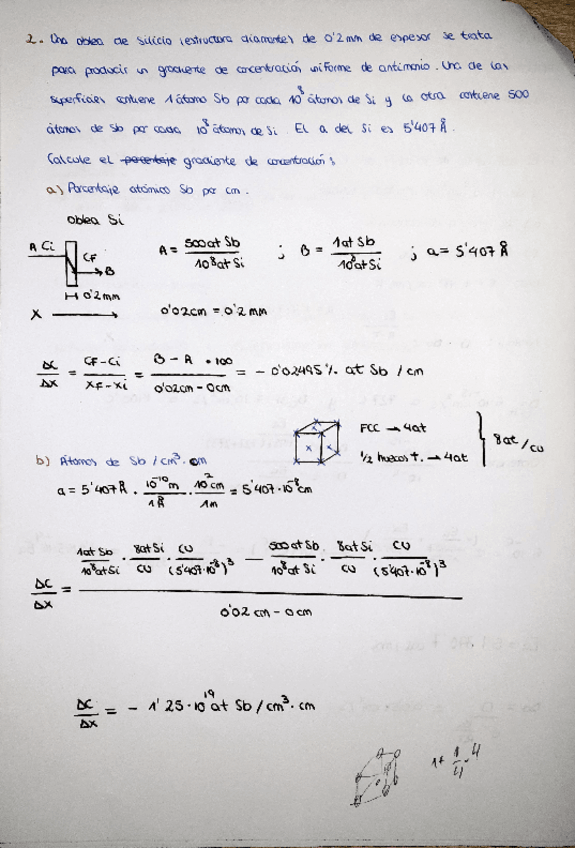 2. Una oblea de silicio (estructura diamante) de 0'2 mm de espesor se trata
para producir un gradiente de concentración uniforme de antimonio. Una de las
superficies contiene 1 átomo Sb por cada 10⁸ átomos de Si y la otra contiene 500
átomos de Sb por cada 10⁸ átomos de Si. El a del Si es 5'407 Å.
Calcule el porcentaje gradiente de concentración:
a) Porcentaje atómico Sb por cm.
oblea Si
A Ci CF → B
0'2 mm
X →
A = 500 at Sb / 10⁸ at Si ; B = 1 at Sb / 10⁸ at Si ; a = 5'407 Å
0'02 cm = 0'2 mm
ΔC/ΔX = (CF - Ci)/(XF - Xi) = (B - A · 100)/(0'02cm - 0cm) = - 0'02495 % at Sb / cm
FCC → 4at
1/2 huecos t. → 4at
} 8at/CU
b) Átomos de Sb / cm³. cm
a = 5'407 Å · 10⁻¹⁰ m / 1 Å · 10² cm / 1 m = 5'407·10⁻⁸ cm
ΔC/ΔX = (1at Sb / 10⁸ at Si · 8at Si / CU · CU / (5'407·10⁻⁸)³ - 500 at Sb / 10⁸ at Si · 8at Si / CU · CU / (5'407·10⁻⁸)³) / (0'02 cm - 0 cm)
ΔC/ΔX = - 1'25·10¹⁹ at Sb / cm³·cm
1 + 1/4 · 4